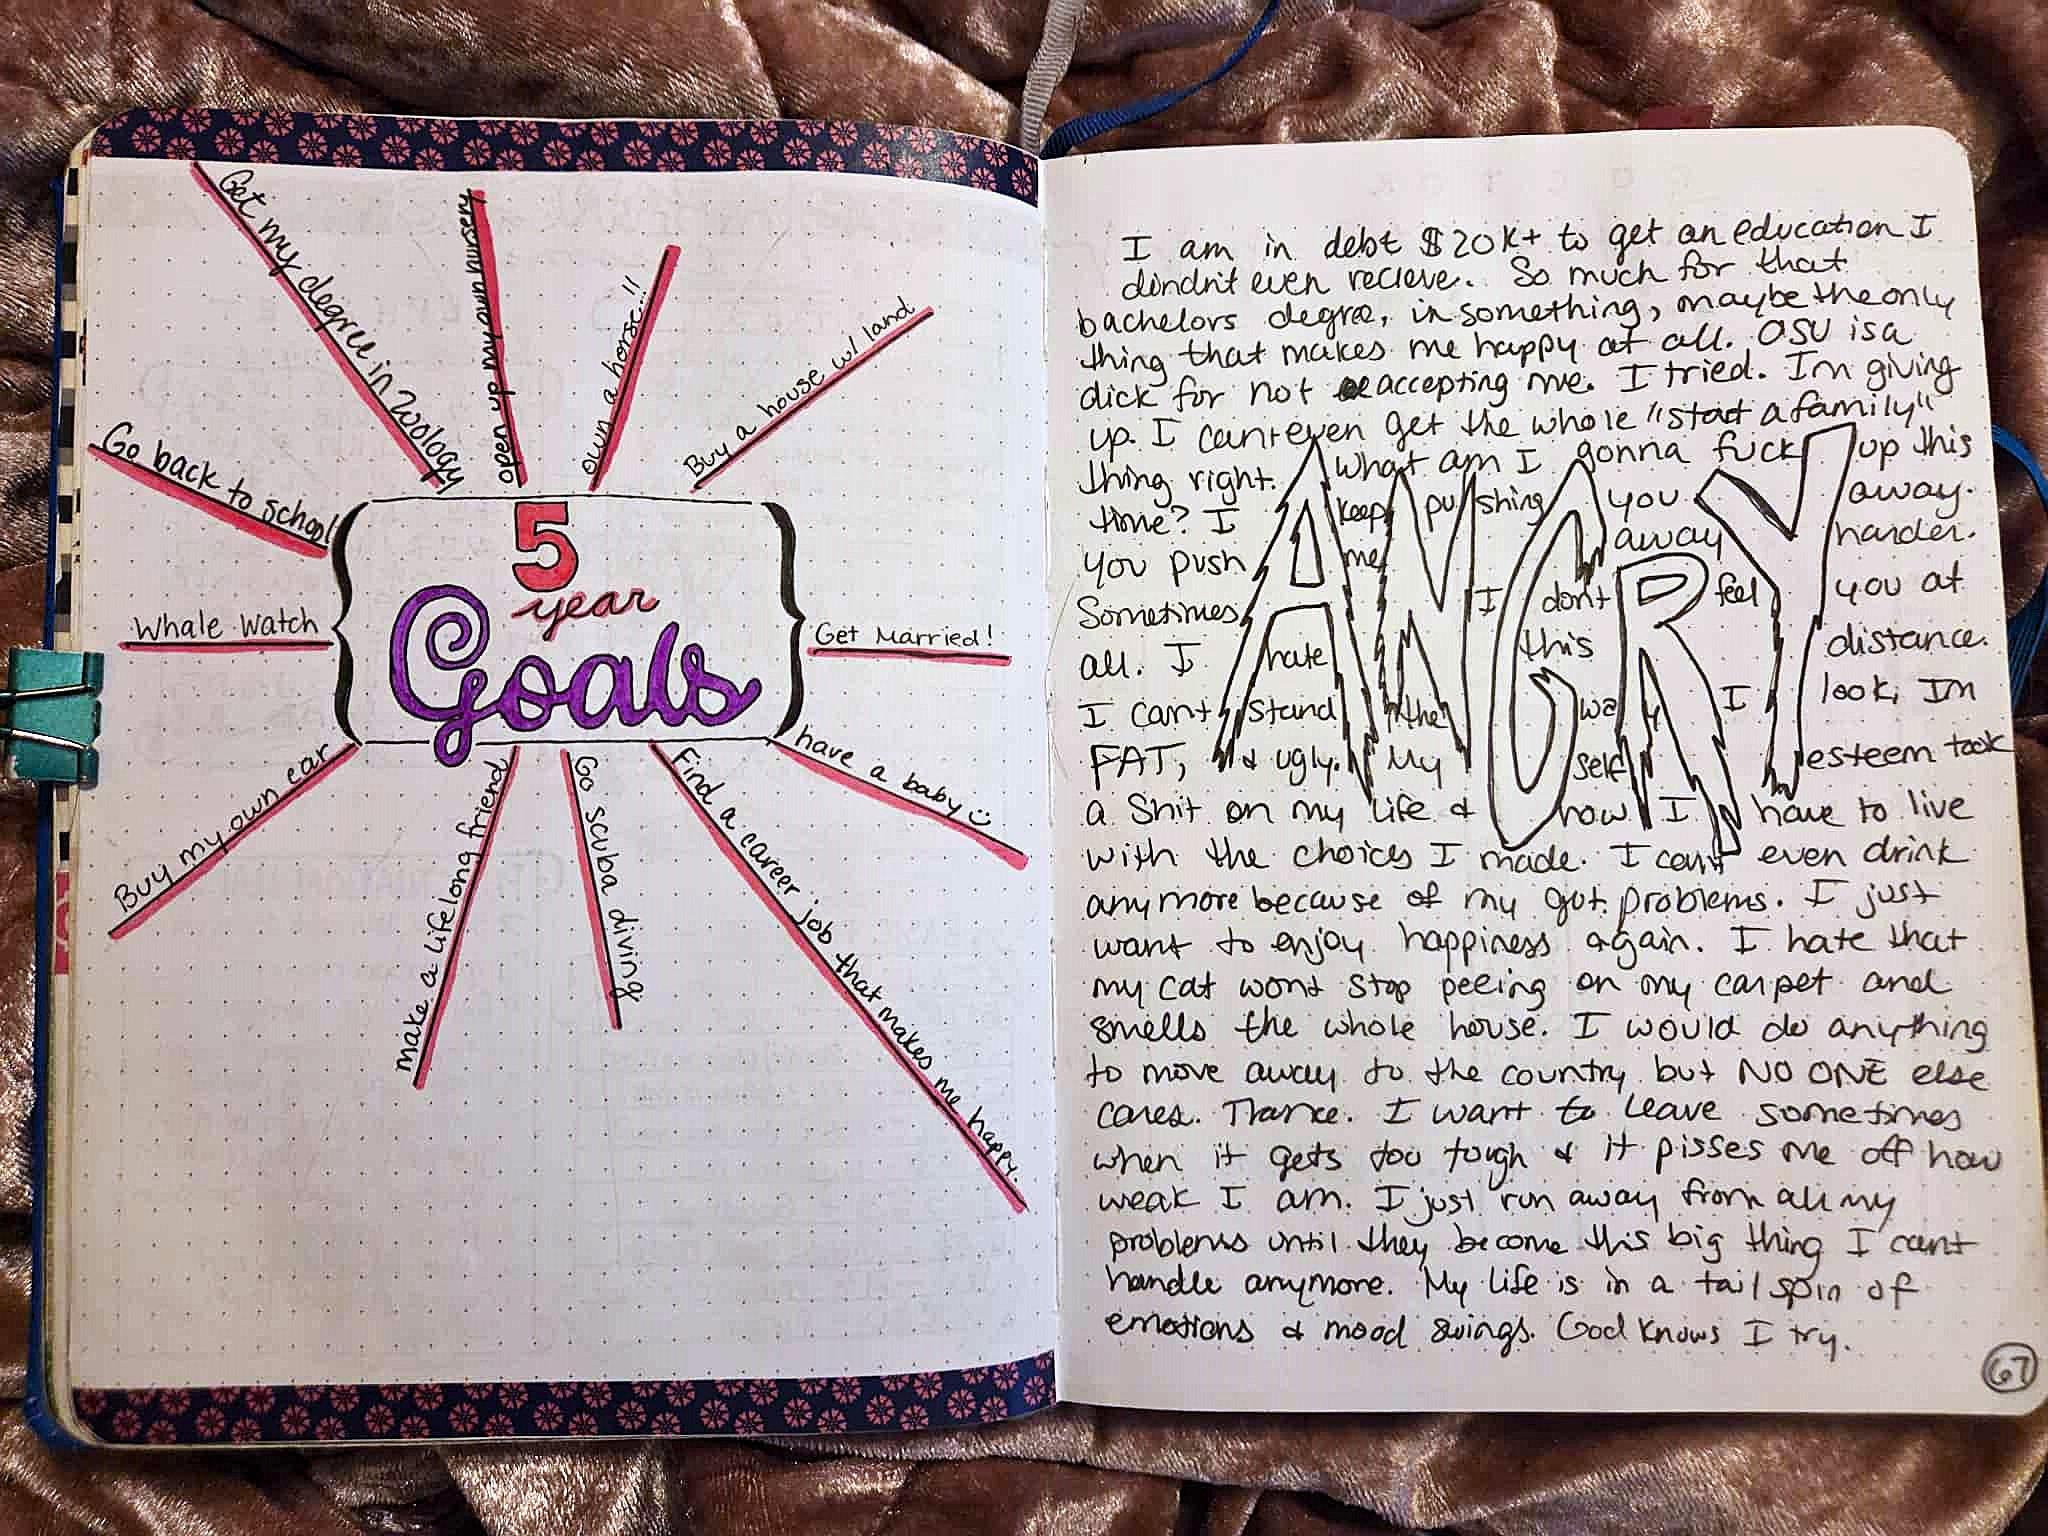 Get my degree in zoology
open up my own nursery
own a horse...!!
Buy a house w/ land
Go back to school!
5
year
Goals
Whale Watch
Get Married!
Buy my own car
make a lifelong friend
Go scuba diving
Find a career job that makes me happy.
have a baby
I am in debt $20K+ to get an education I
dindn't even recieve. So much for that
bachelors degree, in something, maybe the only
thing that makes me happy at all. OSU is a
dick for not accepting me. I tried. Im giving
up. I cant even get the whole "start a family"
thing right. What am I gonna fuck up this
time? I keep pushing you away.
you push me away harder.
Sometimes I dont feel you at
all. I hate this distance.
I cant stand the way I look, Im
FAT, & ugly. My self esteem took
ANGRY
a shit on my life & now I have to live
with the choices I made. I cant even drink
anymore because of my gut problems. I just
want to enjoy happiness again. I hate that
my cat wont stop peeing on my carpet and
smells the whole house. I would do anything
to move away to the country but NO ONE else
cares. I want to leave sometimes
when it gets too tough & it pisses me off how
weak I am. I just run away from all my
problems until they become this big thing I cant
handle anymore. My life is in a tail spin of
emotions & mood swings. God knows I try.
67